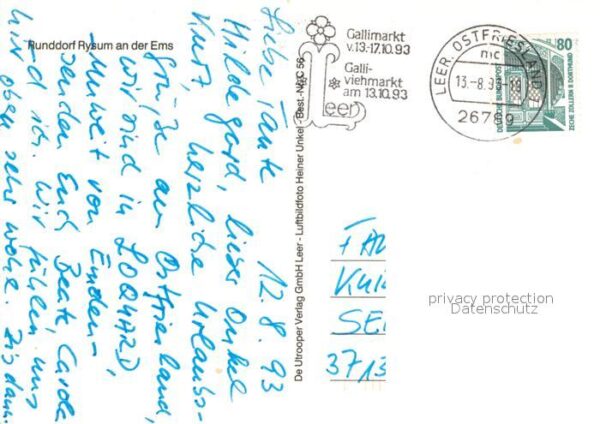 Runddorf Rysum an der Ems
12.8.93
Liebe Tante
Hildegard, lieber Onkel
Kurt, herzliche Urlaubs-
grüße aus Ostfriesland,
wir sind in LOQUARD
- Unweit von Emden -
senden Euch Beate, Carola
und ich. Wir fühlen uns
hier oben sehr wohl. Bis dann.
De Utrooper Verlag GmbH Leer - Luftbildfoto Heiner Unkel Best.-Nr. C 56
Gallimarkt
v.13.-17.10.93
Galli-
viehmarkt
am 13.10.93
Leer
LEER, OSTFRIESLAND
mc
13.-8.93
26789
80
DEUTSCHE BUNDESPOST
ZECHE ZOLLERN II DORTMUND
FA
KU
SE
3713
privacy protection
Datenschutz